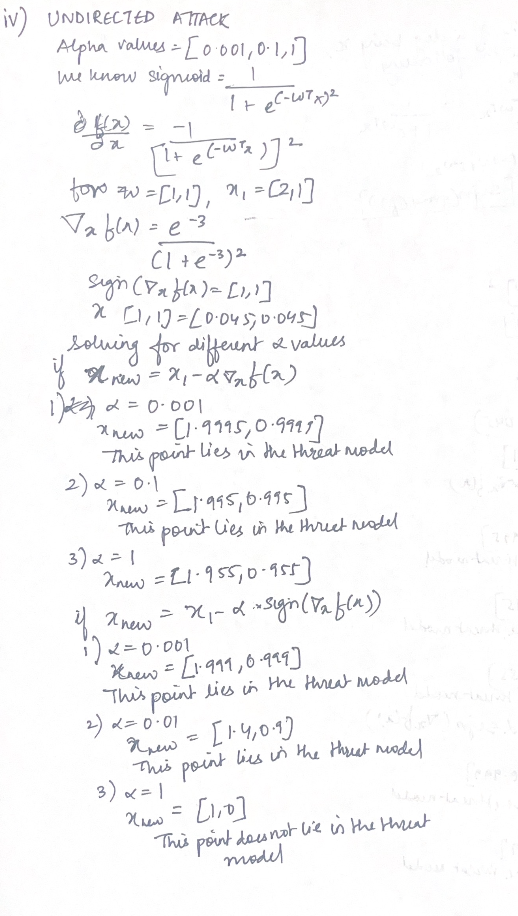 iv) UNDIRECTED ATTACK
Alpha values = [0.001, 0.1, 1]
we know sigmoid = 1 / 1 + e^(-wTx)^2
∂ f(x) / ∂x = -1 / [1 + e^(-wTx)]^2
for w = [1,1], x1 = [2,1]
∇x f(x) = e^-3 / (1 + e^-3)^2
Sign (∇x f(x) = [1,1]
x [1,1] = [0.045, 0.045]
solving for different α values
if x new = x1 - α ∇x f(x)
1) α = 0.001
x new = [1.9995, 0.9995]
This point lies in the threat model
2) α = 0.1
x new = [1.995, 0.995]
This point lies in the threat model
3) α = 1
x new = [1.955, 0.955]
if x new = x1 - α * sign(∇x f(x))
1) α = 0.001
x new = [1.999, 0.999]
This point lies in the threat model
2) α = 0.01
x new = [1.4, 0.9]
This point lies in the threat model
3) α = 1
x new = [1,0]
This point does not lie in the threat
model